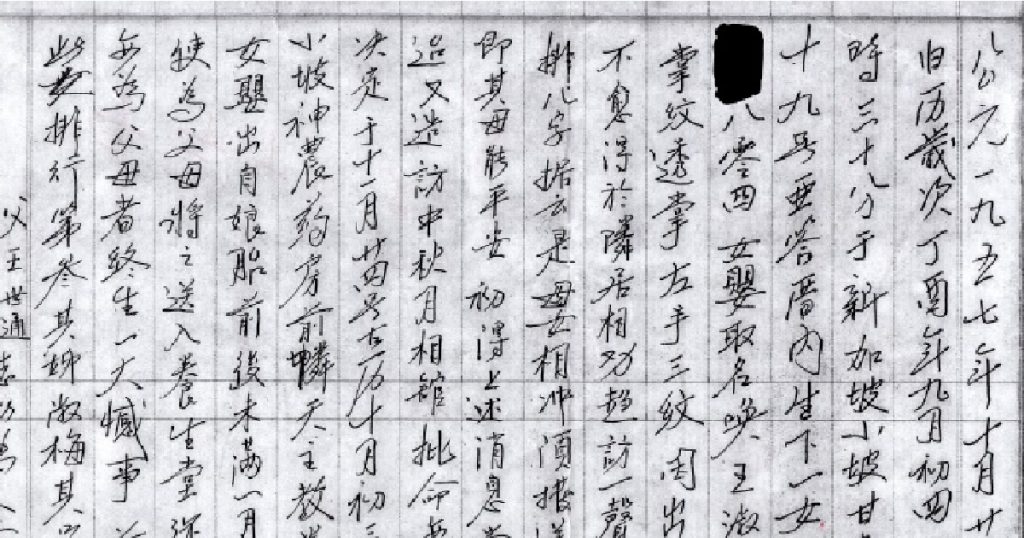 公元一九五七年十月廿
旧历岁次丁酉年九月初四
时三十八分于新加坡小坡甘
十九号亚答厝内生下一女
八零四 女嬰取名唤王淑
掌紋透掌左手三紋因出
不愈得於隣居相劝趋訪一瞽
排八字据云是母女相冲須送
即其母能平安 初得上述消息
迢又造訪中秋月相館 批命
决定于十一月廿四号古历十月初三
小坡神農药房前嶙天主教
女嬰出自娘胎前後未滿一月
使為父母將之送入養生堂
每為父母者終生一大憾事
此女排行第叁其姊淑梅其
父王世通